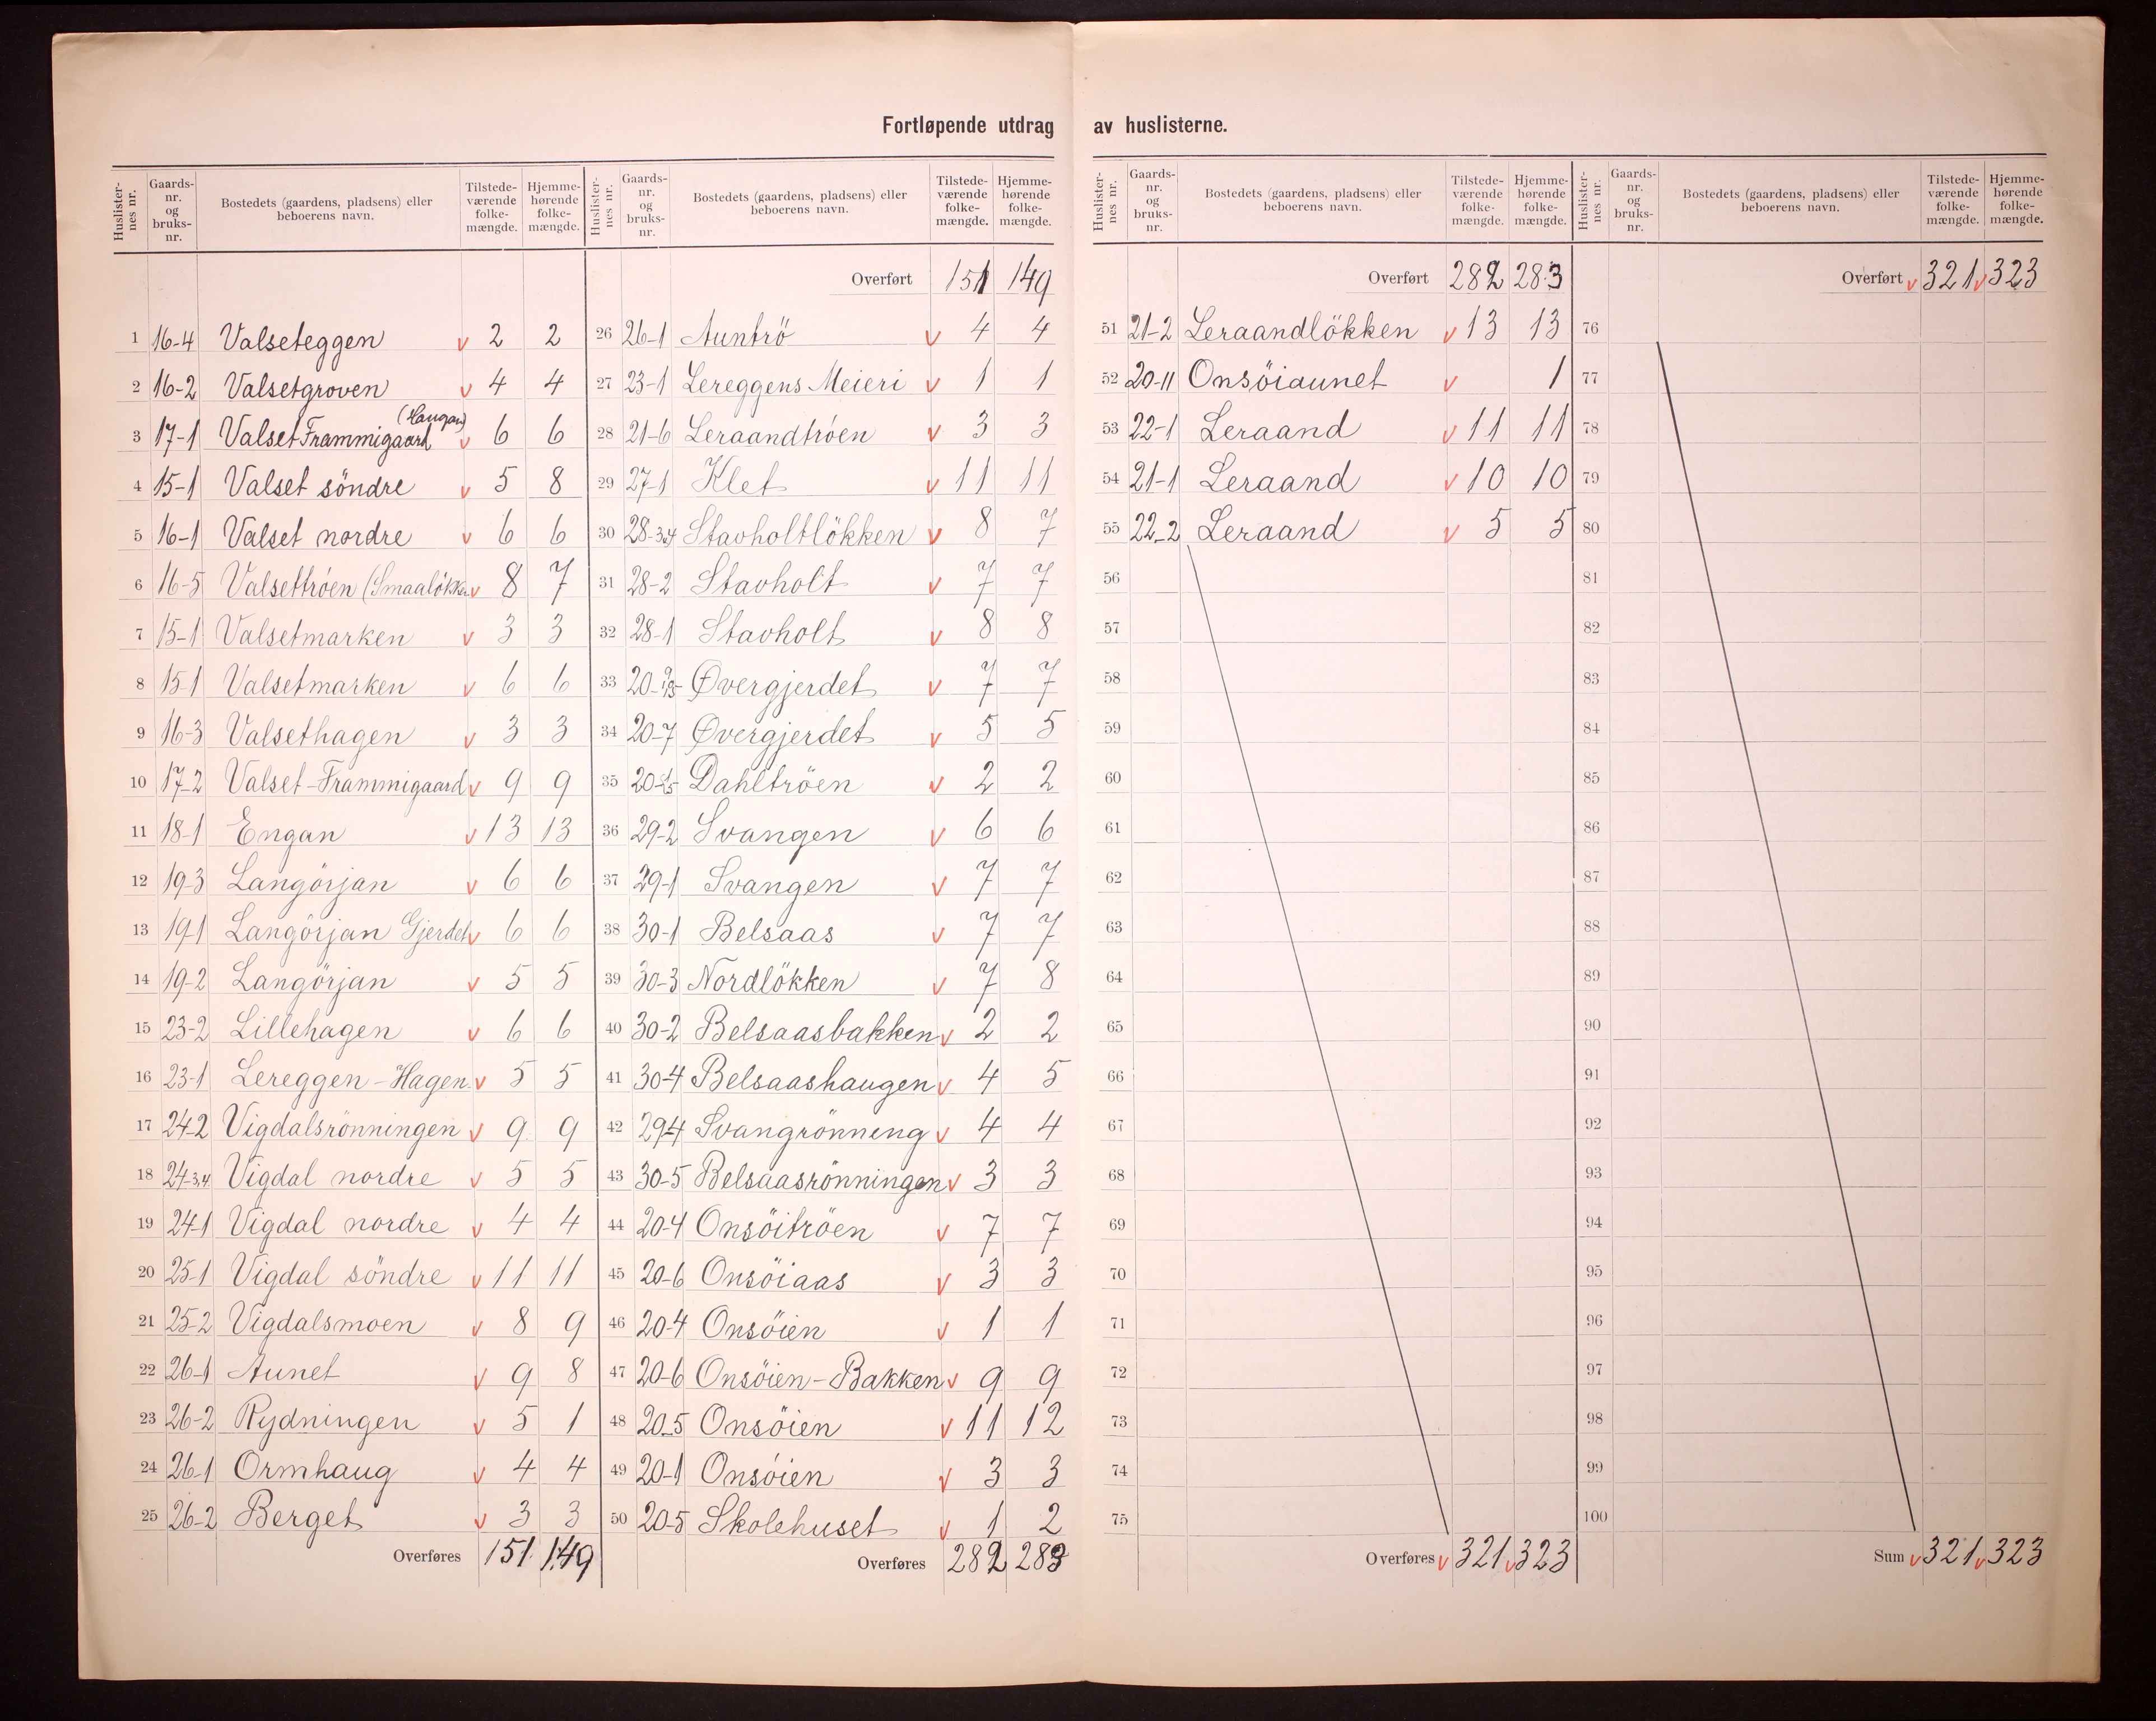 Fortløpende utdrag av huslisterne.
Huslisternes nr. Gaards-nr. og bruks-nr. Bostedets (gaardens, pladsens) eller beboerens navn. Tilstede-værende folke-mængde. Hjemme-hørende folke-mængde.
1 16-4 Valseteggen v 2 2
2 16-2 Valsetgroven v 4 4
3 17-1 Valset Frammigaard (Haugan) v 6 6
4 15-1 Valset söndre v 5 8
5 16-1 Valset nordre v 6 6
6 16-5 Valsettröen (Smaalökken v 8 7
7 15-1 Valsetmarken v 3 3
8 15-1 Valsetmarken v 6 6
9 16-3 Valsethagen v 3 3
10 17-2 Valset-Frammigaard v 9 9
11 18-1 Engan v 13 13
12 19-3 Langörjan v 6 6
13 19-1 Langörjan Gjerdet v 6 6
14 19-2 Langörjan v 5 5
15 23-2 Lillehagen v 6 6
16 23-1 Lereggen-Hagen v 5 5
17 24-2 Vigdalsrönningen v 9 9
18 24-3,4 Vigdal nordre v 5 5
19 24-1 Vigdal nordre v 4 4
20 25-1 Vigdal söndre v 11 11
21 25-2 Vigdalsmoen v 8 9
22 26-1 Aunet v 9 8
23 26-2 Rydningen v 5 1
24 26-1 Ormhaug v 4 4
25 26-2 Berget v 3 3
Overføres 151 149
Huslisternes nr. Gaards-nr. og bruks-nr. Bostedets (gaardens, pladsens) eller beboerens navn. Tilstede-værende folke-mængde. Hjemme-hørende folke-mængde.
Overført 151 149
26 26-1 Auntrö v 4 4
27 23-1 Lereggens Meieri v 1 1
28 21-6 Leraandtröen v 3 3
29 27-1 Klet v 11 11
30 28-3,4 Stavholtlökken v 8 7
31 28-2 Stavholt v 7 7
32 28-1 Stavholt v 8 8
33 20- Øvergjerdet v 7 7
34 20-7 Øvergjerdet v 5 5
35 20- Dahltröen v 2 2
36 29-2 Svangen v 6 6
37 29-1 Svangen v 7 7
38 30-1 Belsaas v 7 7
39 30-3 Nordlökken v 7 8
40 30-2 Belsaasbakken v 2 2
41 30-4 Belsaashaugen v 4 5
42 29-4 Svangrönneng v 4 4
43 30-5 Belsaasrönningen v 3 3
44 20-4 Onsöitröen v 7 7
45 20-6 Onsöiaas v 3 3
46 20-4 Onsöien v 1 1
47 20-6 Onsöien-Bakken v 9 9
48 20-5 Onsöien v 11 12
49 20-1 Onsöien v 3 3
50 20-5 Skolehuset v 1 2
Overføres 282 283
Huslisternes nr. Gaards-nr. og bruks-nr. Bostedets (gaardens, pladsens) eller beboerens navn. Tilstede-værende folke-mængde. Hjemme-hørende folke-mængde.
Overført 282 283
51 21-2 Leraandlökken v 13 13
52 20-11 Onsöiaunet v 1
53 22-1 Leraand v 11 11
54 21-1 Leraand v 10 10
55 22-2 Leraand v 5 5
56
57
58
59
60
61
62
63
64
65
66
67
68
69
70
71
72
73
74
75
Overføres v 321 v 323
Huslisternes nr. Gaards-nr. og bruks-nr. Bostedets (gaardens, pladsens) eller beboerens navn. Tilstede-værende folke-mængde. Hjemme-hørende folke-mængde.
Overført v 321 v 323
76
77
78
79
80
81
82
83
84
85
86
87
88
89
90
91
92
93
94
95
96
97
98
99
100
Sum v 321 v 323